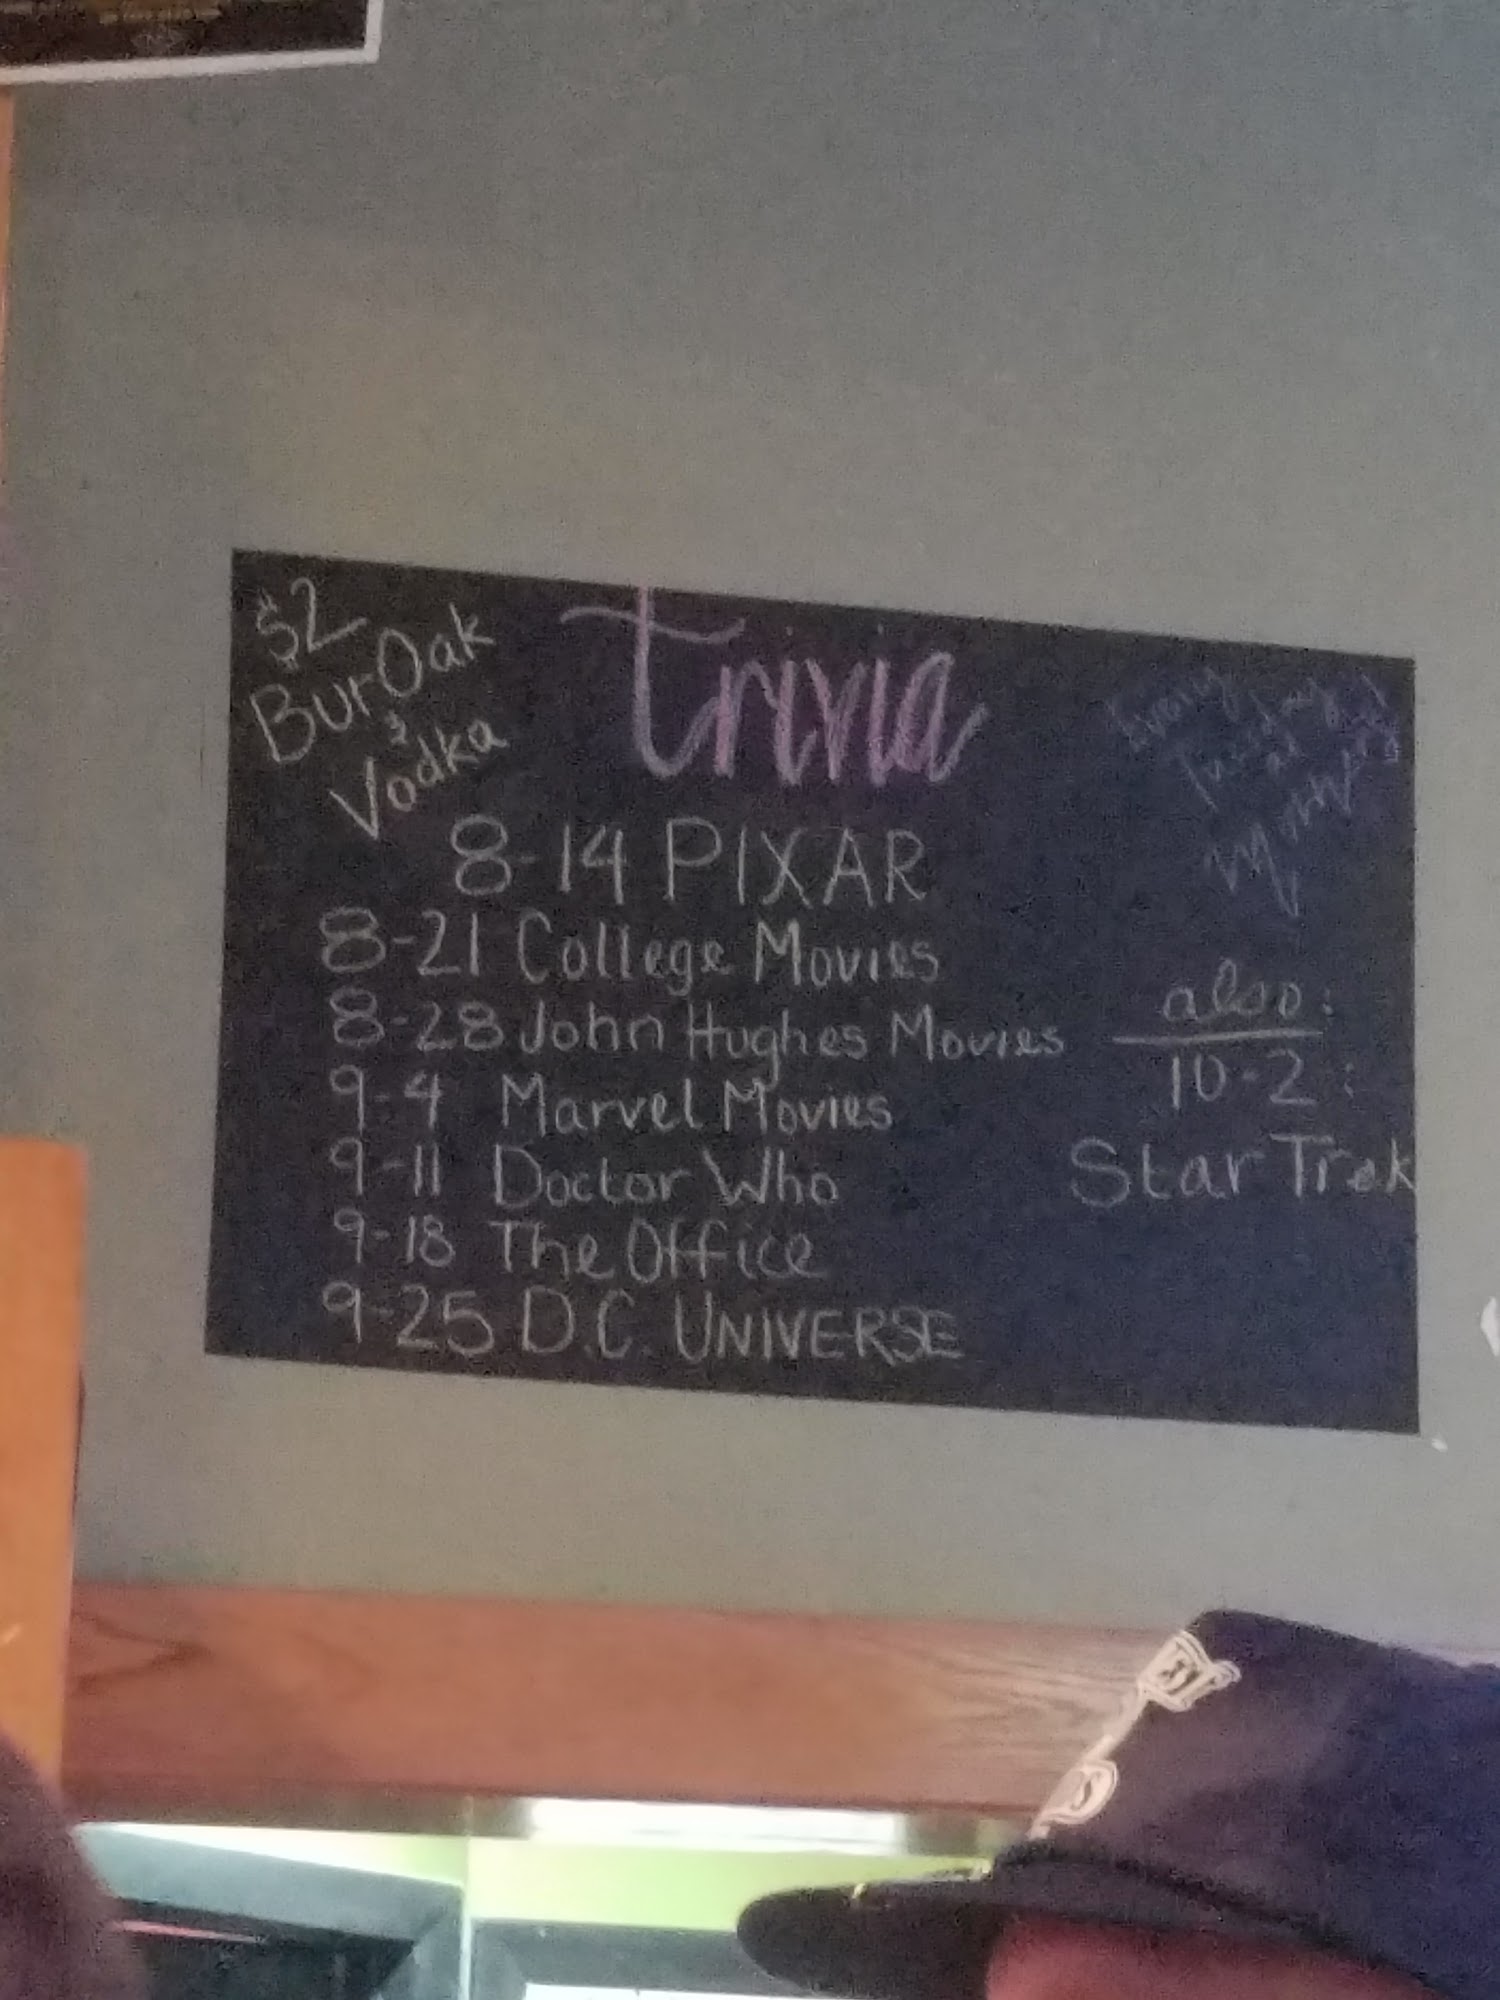 $2
Bur Oak
&
Vodka
Trivia
Every
Tuesday
at
8-14 PIXAR
8-21 College Movies
8-28 John Hughes Movies
9-4 Marvel Movies
9-11 Doctor Who
9-18 The Office
9-25 D.C. UNIVERSE
also:
10-2:
Star Trek